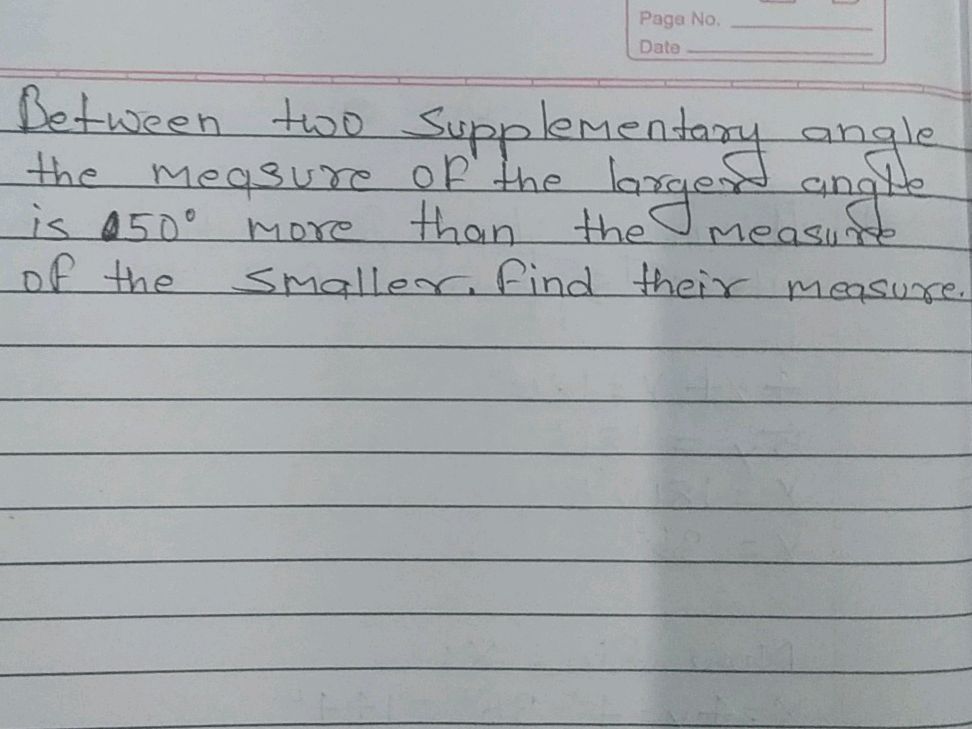 Page No.
Date
Between two supplementary angle
the measure of the larger angle
is 50° more than the measure
of the smaller. find their measure.